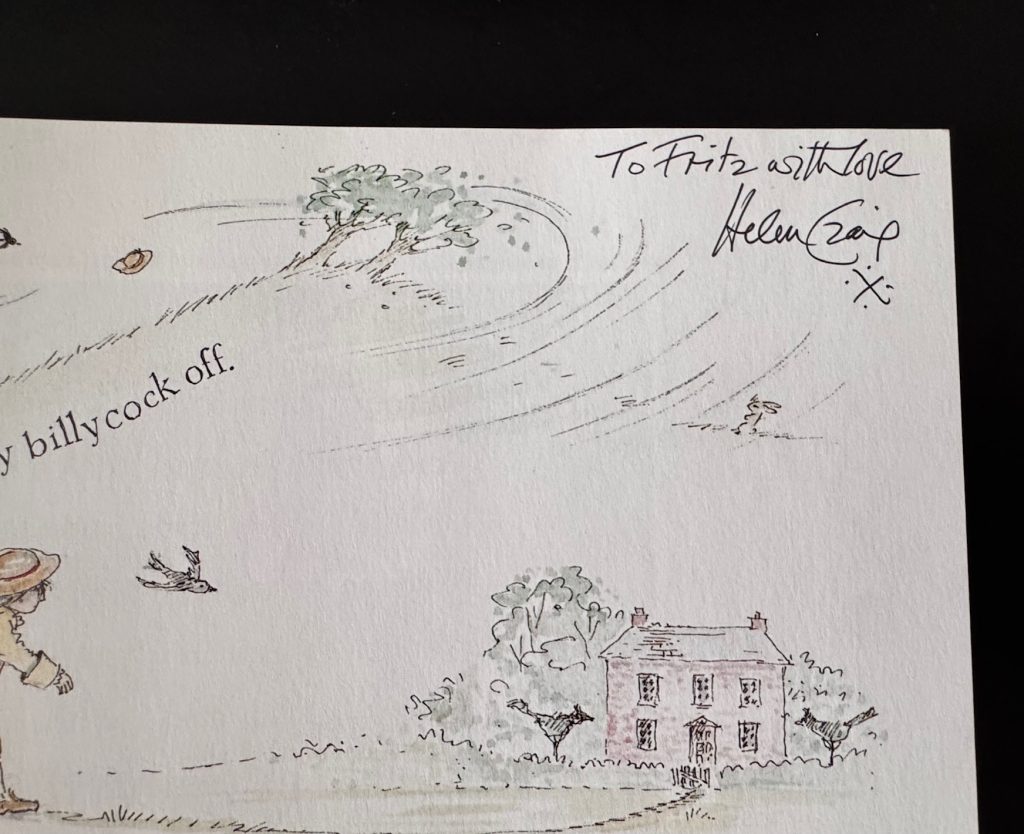 To Fritz with love
Helen Craig
x
y billycock off.